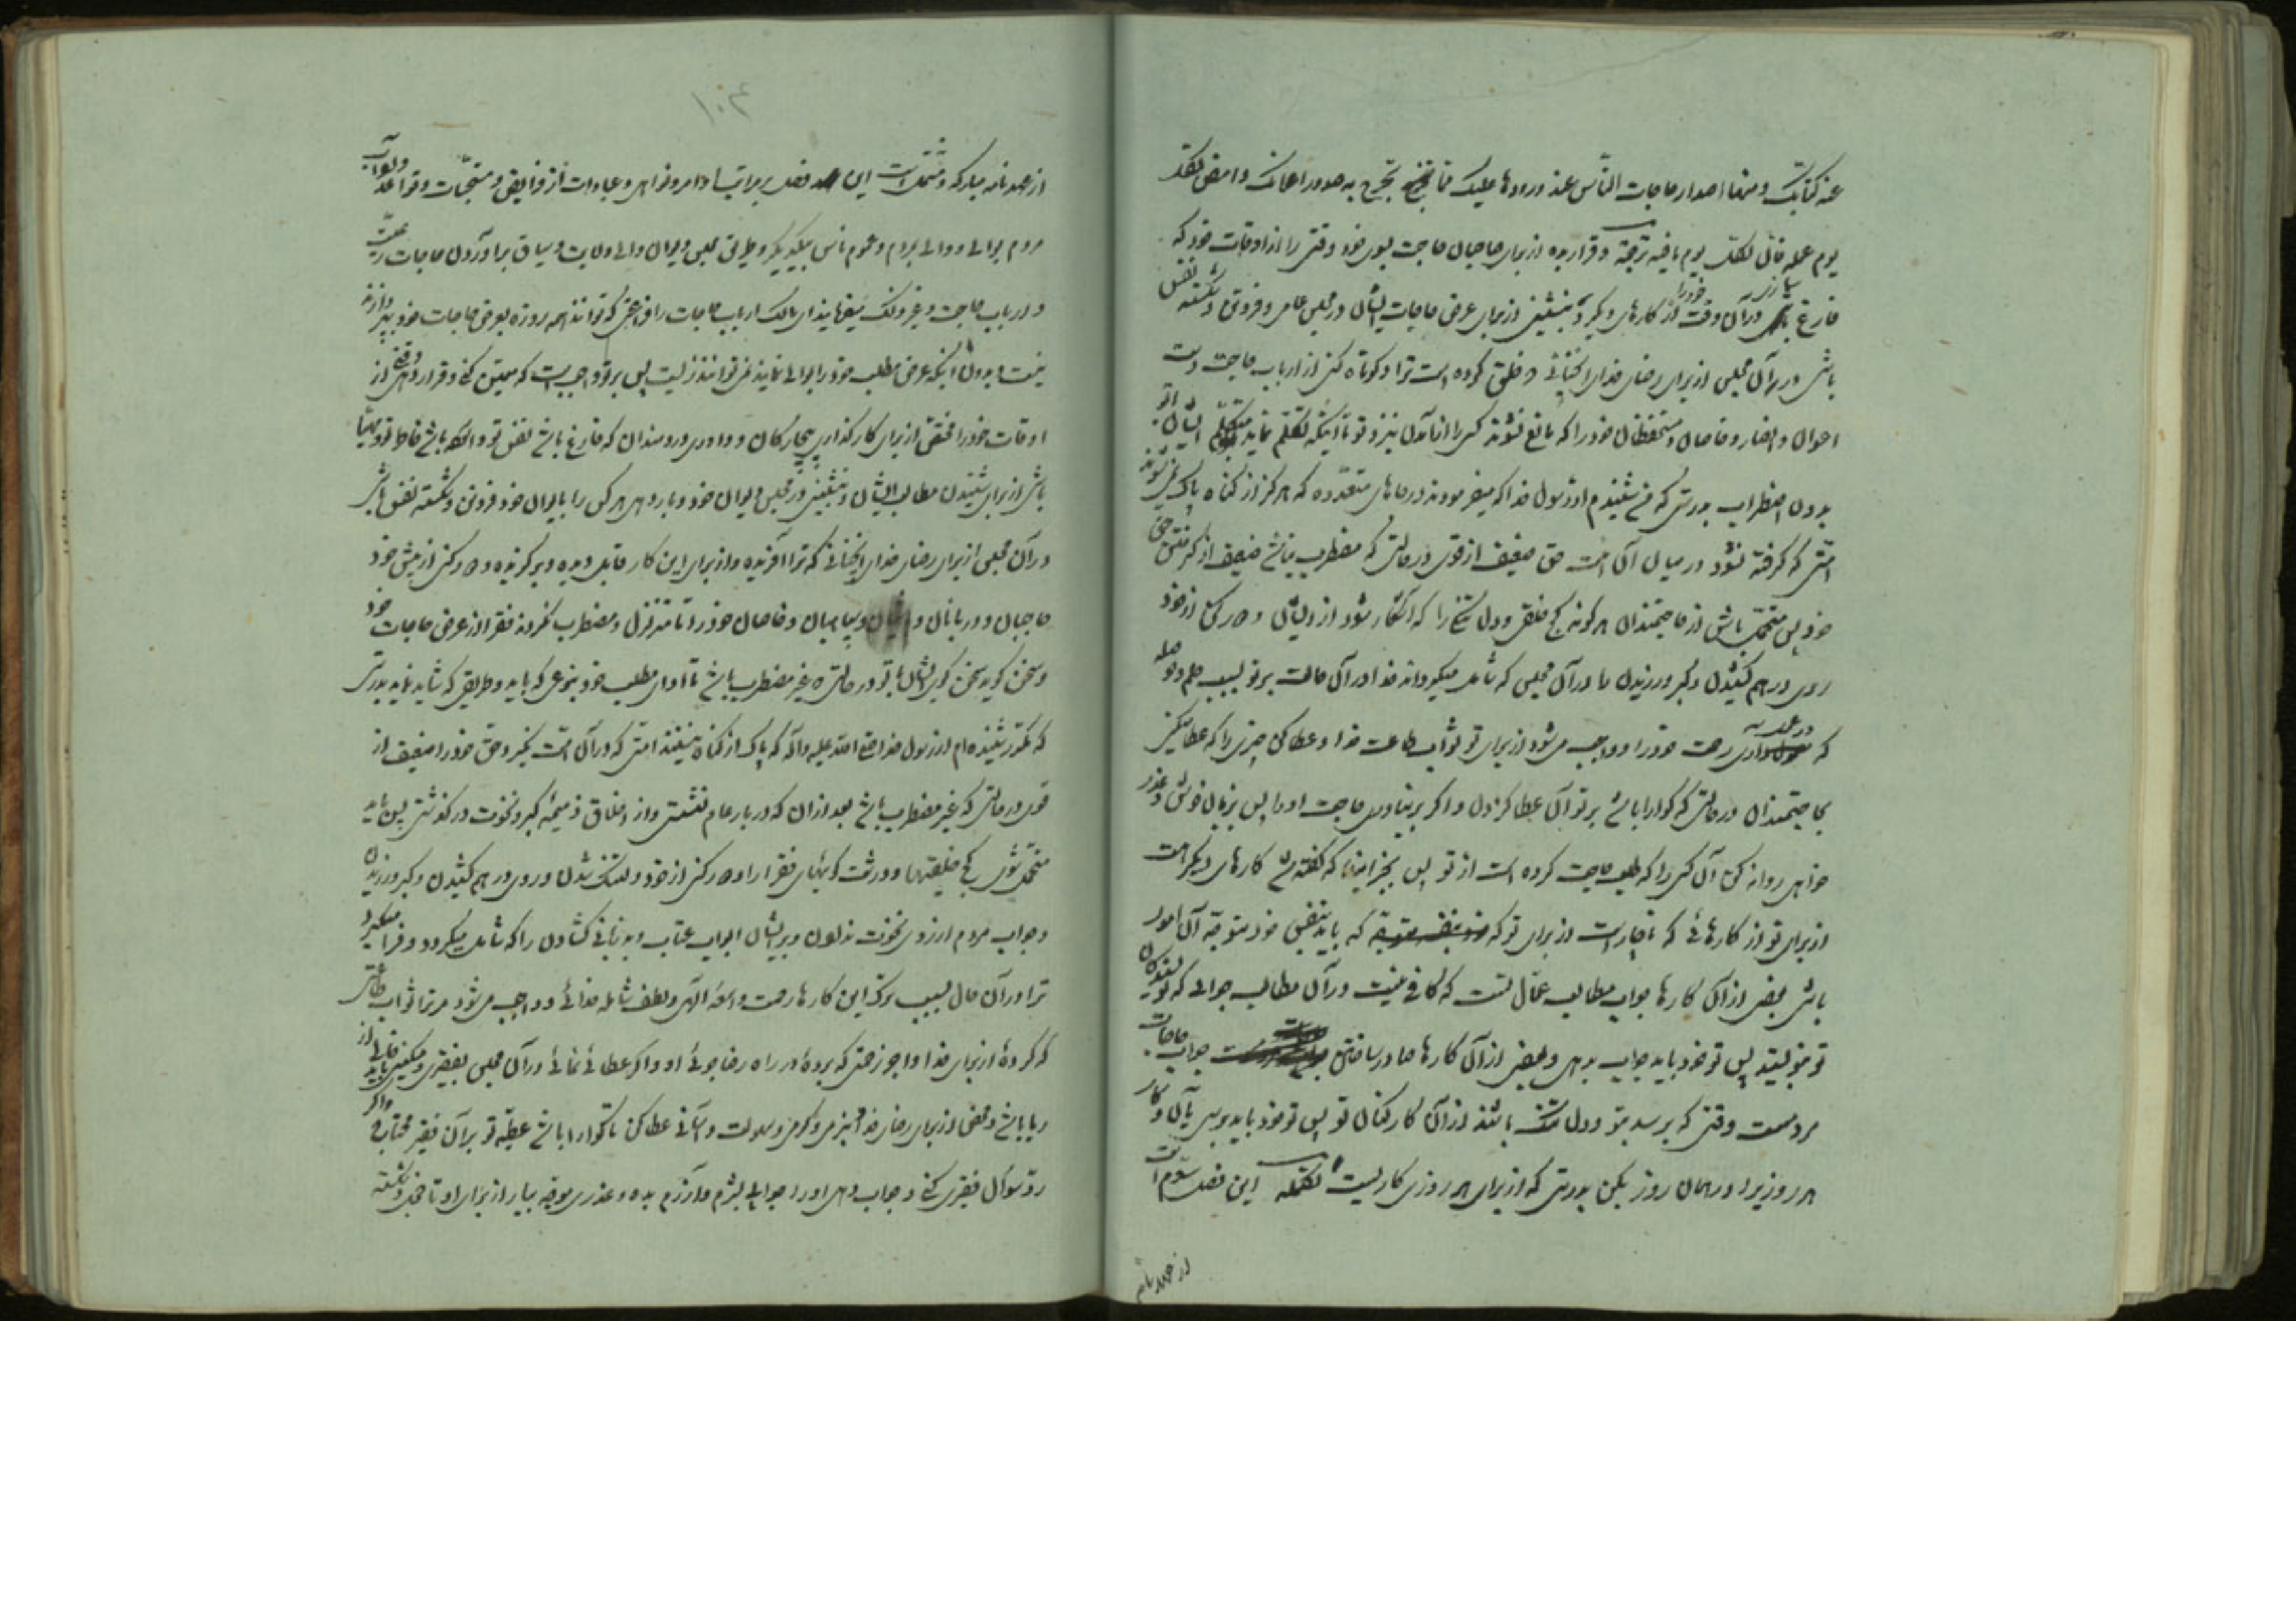 عنه کتابک و منها اصدار حاجات النّاس عند ورودها علیک مما تحرج به صدور اعوانک و امض لکل
یوم عمله فانّ لکلّ یوم ما فیه ترجمة و قرار بده از برای صاحبان حاجت بسوی خود وقتی را از اوقات خود که
فارغ سازی در آن وقت خود را از کارهای دیگر و بنشینی از برای عرض حاجات ایشان در مجلس عام و فروتن و شکسته نفس
باش در آن مجلس از برای رضای خدای آنچنانی که خلق کرده است ترا و کوتاه کن از ارباب حاجت دست
اعوان و انصار و خاصان و مستحفظان خود را که مانع نشوند کسی را از آمدن نزد تو تا اینکه تکلّم نماید متکلّم ایشان با تو
بدون اضطراب بدرستی که من شنیدم از رسول خدا که میفرمودند در جاهای متعدّده که هرگز از گناه پاک نمی شوند
امّتی که گرفته نشود در میان آن امت حق ضعیف از قوی در حالتی که مضطرب نباشد ضعیف از گرفتن حق
خود پس متحمّل باش از حاجتمندان هر گونه کج خلقی و دل تنگی را که آشکار شود از ایشان و دور کن از خود
روی درهم کشیدن و کبر ورزیدن را در آن مجلس که شامل میگرداند خدا در آن حالت بر تو بسبب حلم و حوصله
که در عدریه داری رحمت خود را و واجب می شود از برای تو ثواب طاعت خدا و عطا کن چیزی را که عطا میکنی
بحاجتمندان در حالتی که گوارا باشد بر تو آن عطا کردن و اگر بر نیاوری حاجت او را پس بزبان خوش و عذر
خواهی روانه کن آن کسی را که طلب حاجت کرده است از تو پس بجز اینها که گفته شد کارهای دیگر است
از برای تو از کارهائی که ناچار است از برای تو که باید بنفس خود متوجّه آن امور
باشی بعضی از آن کارها جواب مطالب عمّال تست که کافی نیست در آن مطالب جوابی که نویسندگان
تو بنویسند پس تو خود باید جواب بدهی و بعضی از آن کارها صادر ساختن جواب حاجات
مردمست وقتی که برسد بتو و دل تنگ باشند از آن کارکنان تو پس تو خود باید برسی بآن و کار
هر روز برا در همان روز بکن بدرستی که از برای هر روزی کاریست تکمله این فصل سوّم است
از عهدنامه
۱۰۴
از عهدنامه مبارکه و مشتمل است این فصل بر مراتب اوامر و نواهی و عبادات از فرایض و مستحبّات و قواعد و آداب
مردم بوالی و والی بمردم و عموم ناس بیکدیگر و طریق مجلس دیوان والی ولایت و سیاق برآوردن حاجات رعیّت
و در باب حاجت و غیر ذلک میفرمایند ای مالک ارباب حاجات را فراغتی که توانند همه روزه بعرض حاجات خود بپردازند
نیست و بدون اینکه عرض مطلب خود را بوالی نمایند نمی توانند زیست پس بر تو واجب است که معیّن کنی و قرار دهی وقتی از
اوقات خود را مختصّ از برای کارگذاری بیچارگان و دادرسی دردمندان که فارغ باشد نفس تو و آنگاه باشد خاطر تو و مهیّا
باشی از برای شنیدن مطالب ایشان و بنشینی در مجلس دیوان خود و بار دهی هر کس را بایوان خود فروتن و شکسته نفس باش
در آن مجلس از برای رضای خدای آنچنانی که ترا آفریده و از برای این کار قابل دیده و برگزیده و دور کن از پیش خود
حاجبان و دربانان و سپاهیان و خاصان خود را تا متزلزل و مضطرب نگردند فقرا از عرض حاجات خود
و سخن گوید سخن گوی ایشان با تو در حالتی که غیر مضطرب باشد تا ادای مطلب خود بنوعی که باید و طریقی که شاید نماید بدرستی
که مکرّر شنیده ام از رسول خدا صلی الله علیه و آله که پاک از گناه نیستند امتی که در آن امّت نگیرد حق خود را ضعیف از
قوی در حالتی که غیر مضطرب باشد بعد از آن که در بار عام نشستی و از اخلاق ذمیمهٔ کبر و نخوت در گذشتی پس باید
متحمّل شوی کج خلقیها و درشت گوئیهای فقرا را و دور کنی از خود دلتنگ شدن و روی درهم کشیدن و کبر ورزیدن
و جواب مردم از روی نخوت ندادن و بر ایشان ابواب عتاب و بد زبانی گشادن را که شامل میگردد و فرا میگیرد
ترا در آن حال بسبب ترک این کارها رحمت واسعهٔ الهی و لطف شاملهٔ خدائی و واجب می شود مر ترا ثواب طاعتی
که کردهٔ از برای خدا و اجر زحمتی که بردهٔ در راه رضاجوئی او و اگر عطائی نمائی در آن مجلس بفقیری و مسکینی باید خالی از
ریا باشد و محض از برای رضای خدا و بنرمی و گرمی و سهولت و آسانی عطا کن تا گوارا باشد عطیّهٔ تو بر آن فقیر محتاب و اگر
ردّ سؤال فقیری کنی و جواب دهی او را جوابی بشرم و آزرم بده و عذری موجّه بیار از برای او تا خجل و شکسته